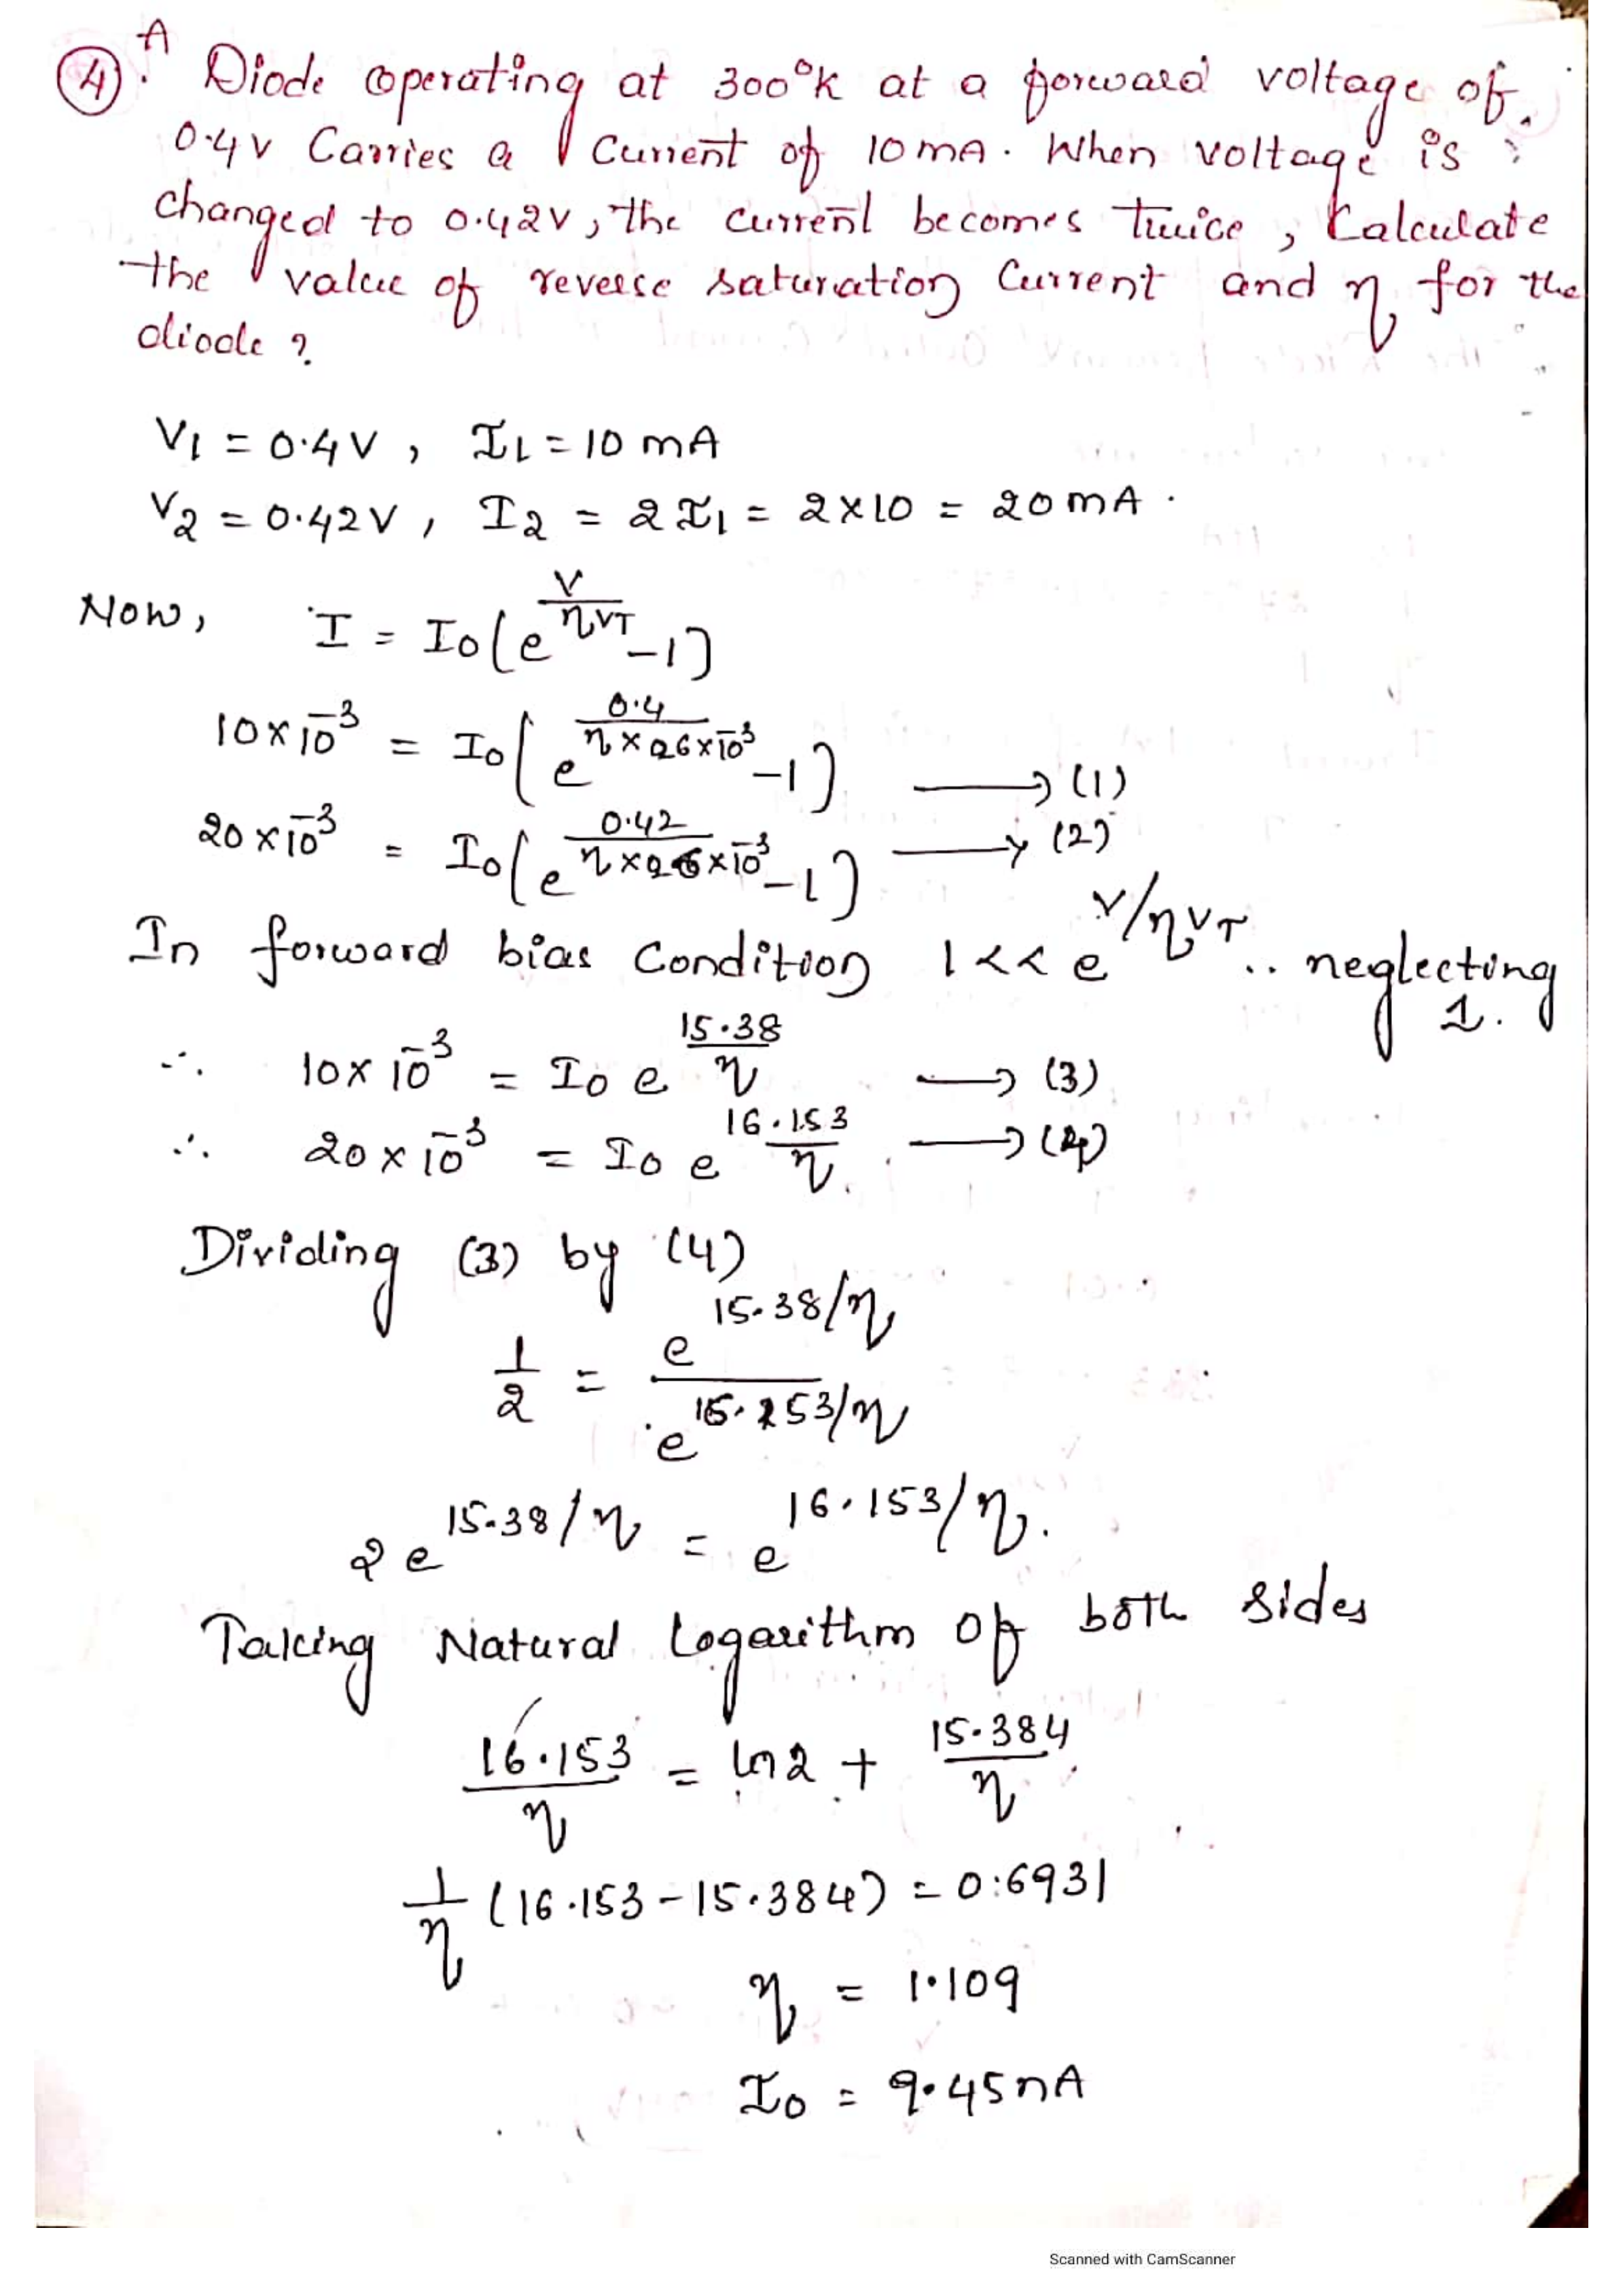 (4). A Diode operating at 300°k at a forward voltage of
0.4v Carries a Current of 10mA. When voltage is
changed to 0.42v, the current becomes twice, Calculate
the value of reverse saturation Current and η for the
diode?
V1 = 0.4V, I1 = 10 mA
V2 = 0.42V, I2 = 2I1 = 2×10 = 20mA.
Now, I = I0[e^(V/ηVT) -1]
10×10^-3 = I0[e^(0.4/(η×26×10^-3)) -1] → (1)
20×10^-3 = I0[e^(0.42/(η×26×10^-3)) -1] → (2)
In forward bias Condition 1<< e^(V/ηVT) .. neglecting
1.
∴ 10×10^-3 = I0 e^(15.38/η) → (3)
∴ 20×10^-3 = I0 e^(16.153/η) → (4)
Dividing (3) by (4)
1/2 = e^(15.38/η) / e^(16.153/η)
2e^(15.38/η) = e^(16.153/η).
Taking Natural Logarithm of both sides
16.153/η = ln2 + 15.384/η
1/η (16.153-15.384) = 0.6931
η = 1.109
I0 = 9.45nA
Scanned with CamScanner